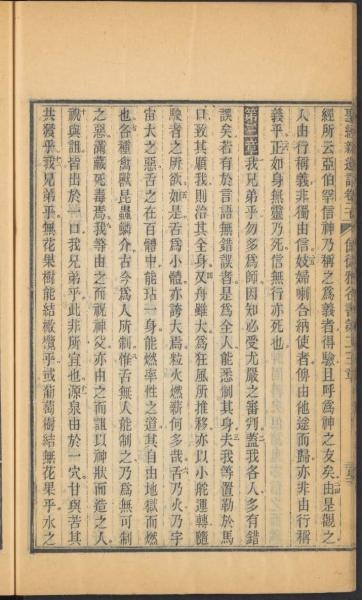 經所云亞伯罕信神乃稱之爲義者得驗且呼爲神之友矣由是觀之
人由行稱義非獨由信妓婦喇合納使者俾由他途而歸亦非由行稱
義乎正如身無靈乃死信無行亦死也
第三章我兄弟乎勿多爲師因知必受尤嚴之審判蓋我各人多有錯
誤矣若有於言語無錯誤者是爲全人能悉制其身夫我等置勒於馬
口致其順我則詥其全身又舟雖大爲狂風所推移亦以小舵運轉隨
駛者之所欲如是舌爲小體亦誇大焉粒火燃薪何多哉舌乃火乃字
宙大之惡舌之在百體中能玷一身能燃率性之道其自由地獄而燃
也各種禽獸昆蟲鱗介古今爲人所制惟舌無人能制之乃爲無可制
之惡滿藏死毒焉我等由之而祝神父亦由之而詛以神狀而造之人
祝與詛皆出於一口我兄弟乎此非所宜也源泉由於一穴甘與苦其
共發乎我兄弟乎無花果樹能結橄欖乎或葡萄樹結無花果乎水之